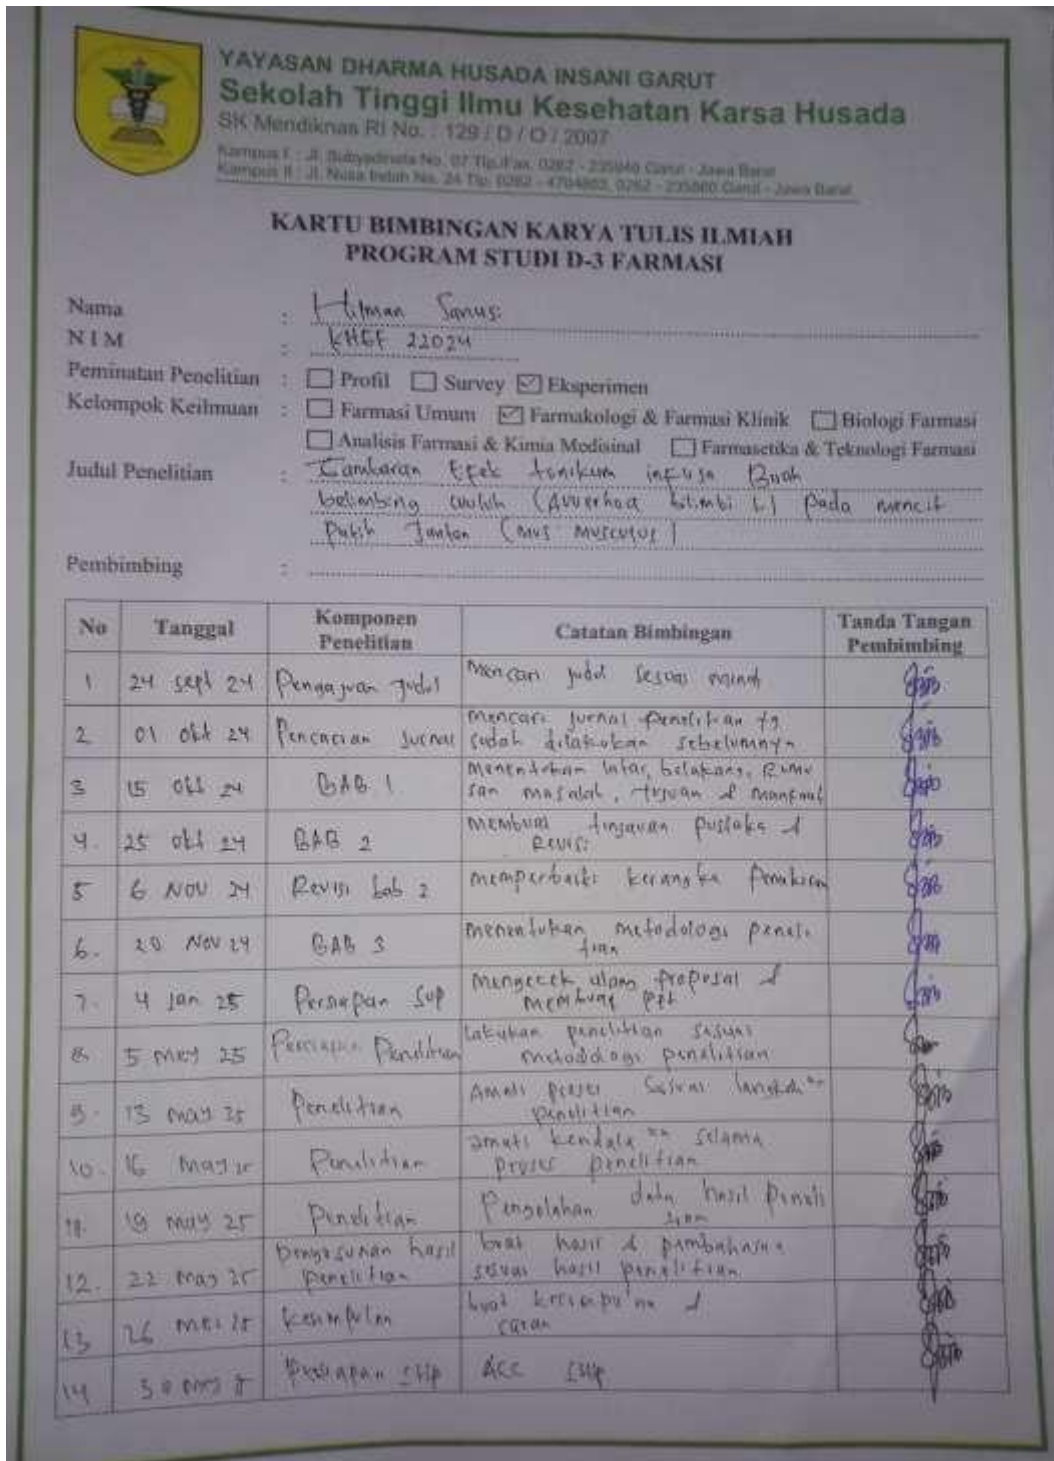 YAYASAN DHARMA HUSADA INSANI GARUT
Sekolah Tinggi Ilmu Kesehatan Karsa Husada
SK Mendiknas RI No. : 129 / D / O / 2007
Kampus I : Jl. Subyadinata No. 07 Tlp./Fax. 0262 - 235946 Garut - Jawa Barat
Kampus II : Jl. Nusa Indah No. 24 Tlp. 0262 - 4704803, 0262 - 235860 Garut - Jawa Barat
KARTU BIMBINGAN KARYA TULIS ILMIAH
PROGRAM STUDI D-3 FARMASI
Nama : Hilman Sanusi
N I M : KHGF 22024
Peminatan Penelitian : Profil Survey Eksperimen
Kelompok Keilmuan : Farmasi Umum Farmakologi & Farmasi Klinik Biologi Farmasi
Analisis Farmasi & Kimia Medisinal Farmasetika & Teknologi Farmasi
Judul Penelitian : Gambaran Efek tonikum infusa Buah
belimbing wuluh (Averrhoa bilimbi L) pada mencit
Putih Jantan (Mus musculus)
Pembimbing :
No Tanggal Komponen Penelitian Catatan Bimbingan Tanda Tangan Pembimbing
1 24 sept 24 Pengajuan Judul Mencari judul sesuai minat
2 01 okt 24 Pencarian Jurnal mencari jurnal penelitian yg
sudah dilakukan sebelumnya
3 15 okt 24 BAB 1 menentukan latar belakang, Rumu
san masalah, tujuan & manfaat
4. 25 okt 24 BAB 2 membuat tinjauan pustaka &
Revisi
5 6 NOV 24 Revisi bab 2 memperbaiki kerangka Pemikiran
6. 20 Nov 24 BAB 3 menentukan metodologi peneli
tian
7. 4 Jan 25 Persiapan SUP mengecek ulang proposal &
membuat ppt
8. 5 Mey 25 Persiapan Penelitian Lakukan penelitian sesuai
metodologi penelitian
9. 13 may 25 Penelitian Amati proses sesuai langkah"
penelitian
10. 16 May 25 Penelitian amati kendala" selama
proses penelitian
11. 19 may 25 Penelitian Pengolahan data hasil peneli
tian
12. 22 may 25 penyusunan hasil penelitian buat hasil & pembahasan
sesuai hasil penelitian
13 26 mei 25 kesimpulan buat kesimpulan &
saran
14 30 Persiapan SHP Acc SHP